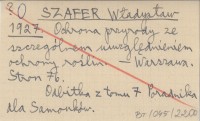 ?O SZAFER Władysław
1927. Ochrona przyrody ze
szczególnem uwzględnieniem
ochrony roślin. — Warszawa.
Stron 76.
Odbitka z tomu 7 Poradnika
dla Samouków.